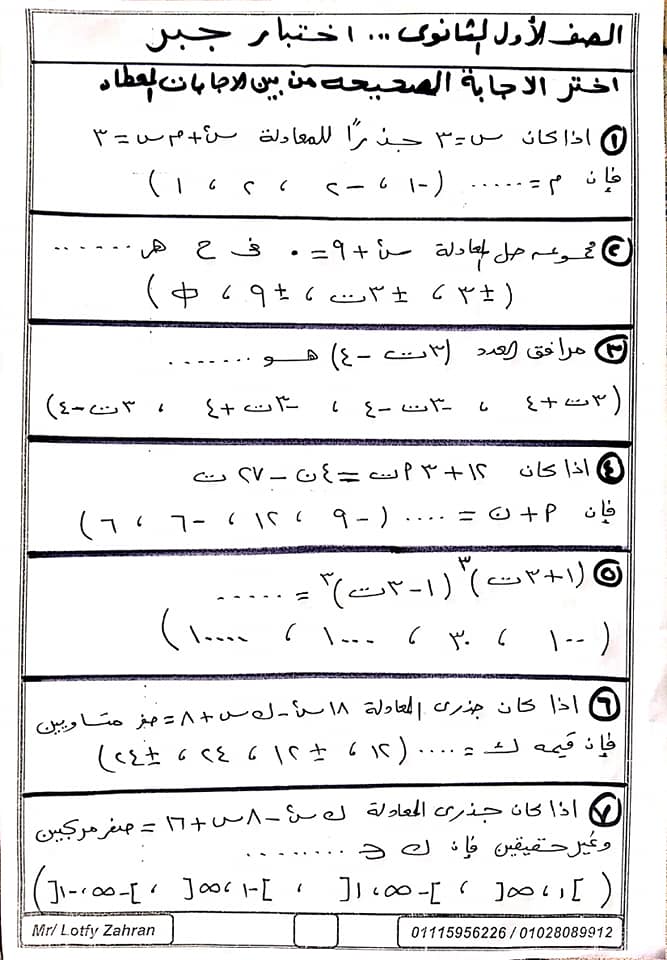 الصف الأول الثانوى ... اختبار جبر
اختر الاجابة الصحيحه من بين الاجابات المعطاه
① اذا كان س = ٣ جذرًا للمعادلة س٢ + م س = ٣
فإن م = ..... (-١ ، -٢ ، ٢ ، ١)
② مجموعه حل المعادلة س٢ + ٩ = ٠ فى ح هى ......
(±٣ ، ±٣ت ، ±٩ ، ф)
③ مرافق العدد (٣ت - ٤) هو .......
(٣ت + ٤ ، -٣ت - ٤ ، -٣ت + ٤ ، ٣ت - ٤)
④ اذا كان ١٢ + ٣ م ت = ٤ ن - ٢٧ ت
فإن م + ن = .... (-٩ ، ١٢ ، -٦ ، ٦)
⑤ (١ + ٣ت)٣ (١ - ٣ت)٣ = .....
(١٠٠ ، ٣٠ ، ١٠٠٠ ، ١٠٠٠٠)
⑥ اذا كان جذرى المعادلة ١٨ س٢ - ك س + ٨ = صفر متساويين
فإن قيمه ك = .... (١٢ ، ±١٢ ، ٢٤ ، ±٢٤)
⑦ اذا كان جذرى المعادلة ك س٢ - ٨ س + ١٦ = صفر مركبين
وغير حقيقين فإن ك ∈ .........
( ]١ ، ∞[ ، ]-∞ ، ١[ ، ]-١ ، ∞[ ، ]-∞ ، -١[ )
Mr/ Lotfy Zahran
01115956226 / 01028089912